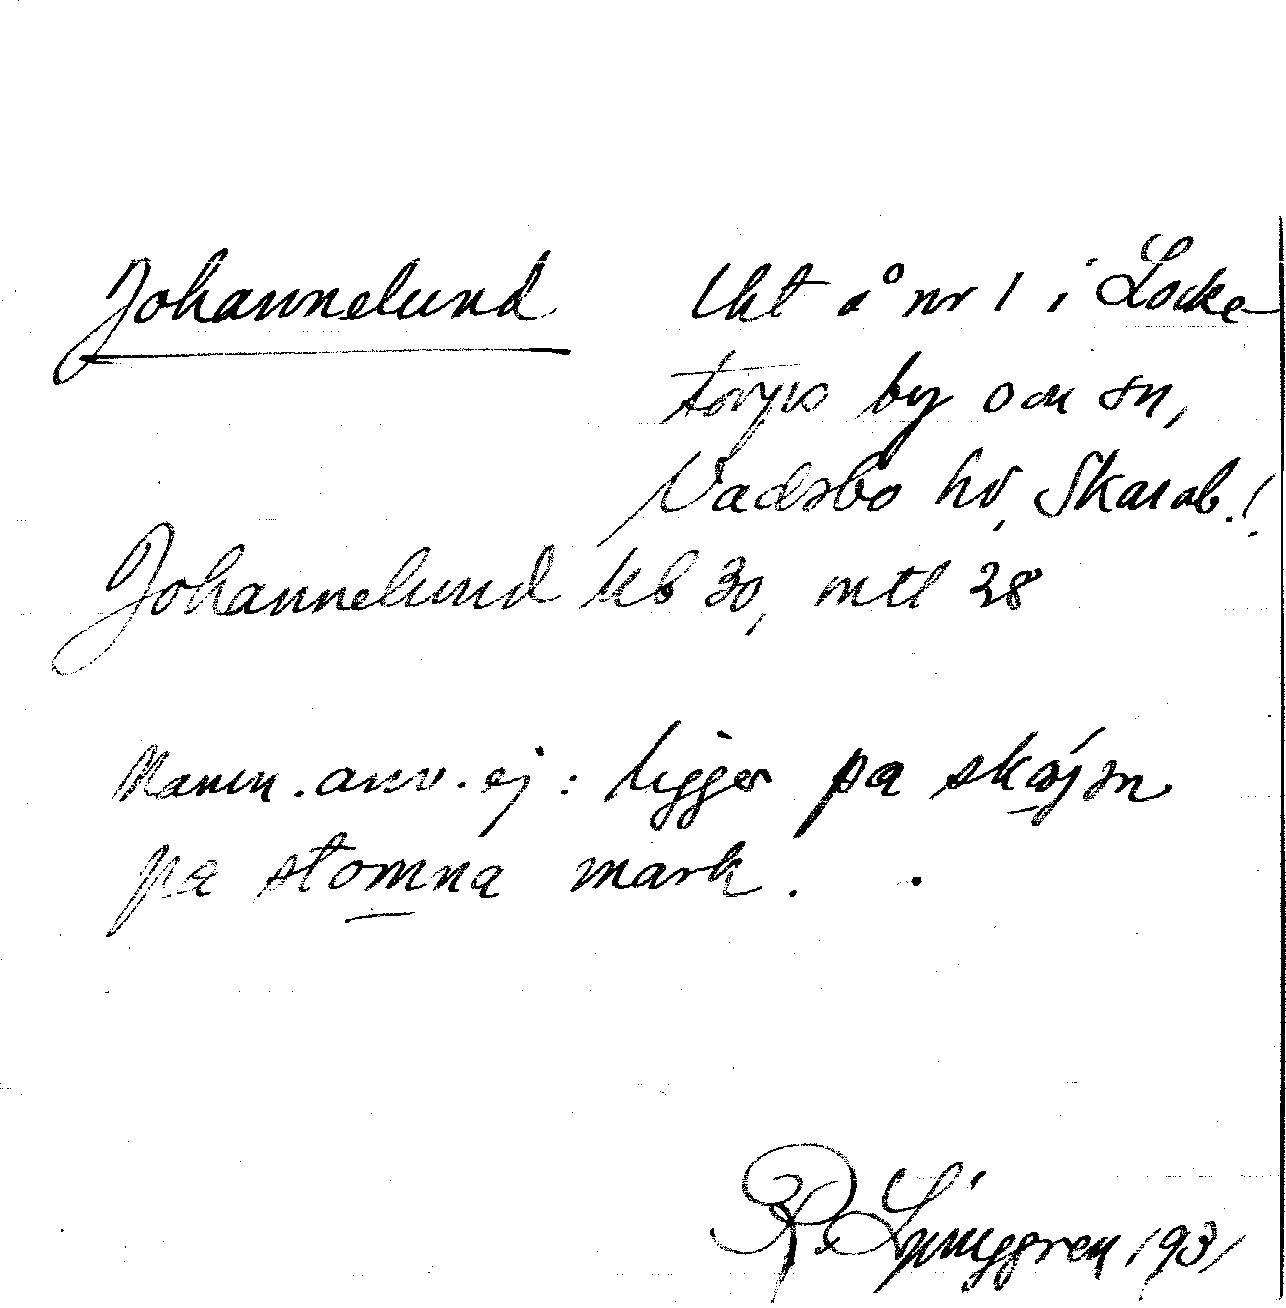 Johannelund Lht å nr 1 i Locke
torps by och sn,
Vadsbo hd, Skarab. l.
Johannelund kb 30, mtl 28
Namn. anv. ej: ligger pa
pa stomna mark.
R. Ljunggren 1931